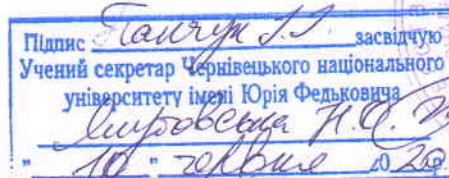 Підпис Танчук І.І. засвідчую
Учений секретар Чернівецького національного
університету імені Юрія Федьковича
Н.О.
" 10 " червня 2020 р.